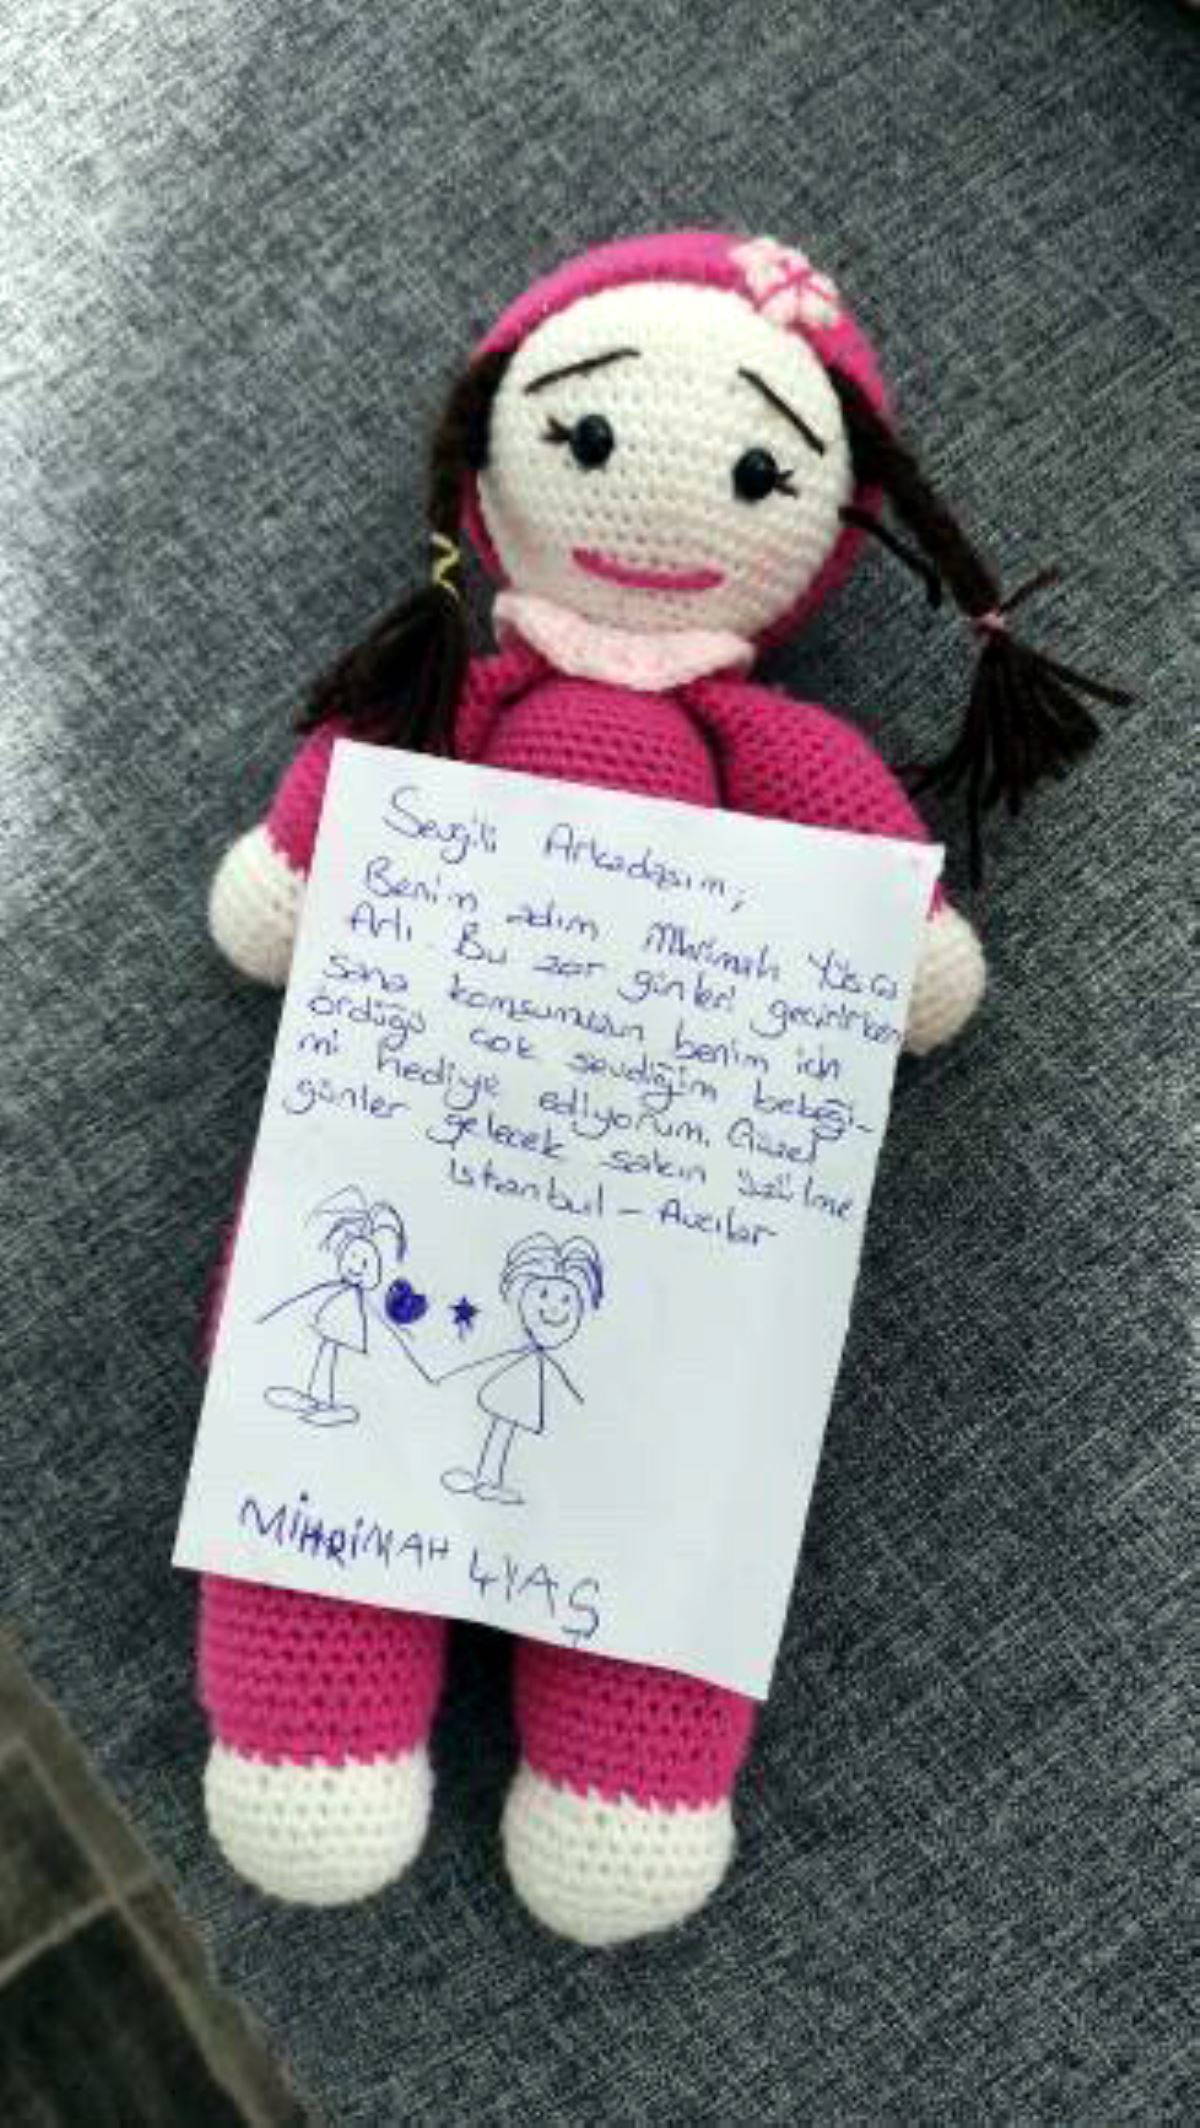 Sevgili Arkadaşım,
Benim adım Mihrimah Yüsra
Arlı. Bu zor günleri geçirirken
sana komşumuzun benim için
ördüğü çok sevdiğim bebeği-
mi hediye ediyorum. Güzel
günler gelecek sakın üzülme
İstanbul - Avcılar
MİHRİMAH 4 YAŞ